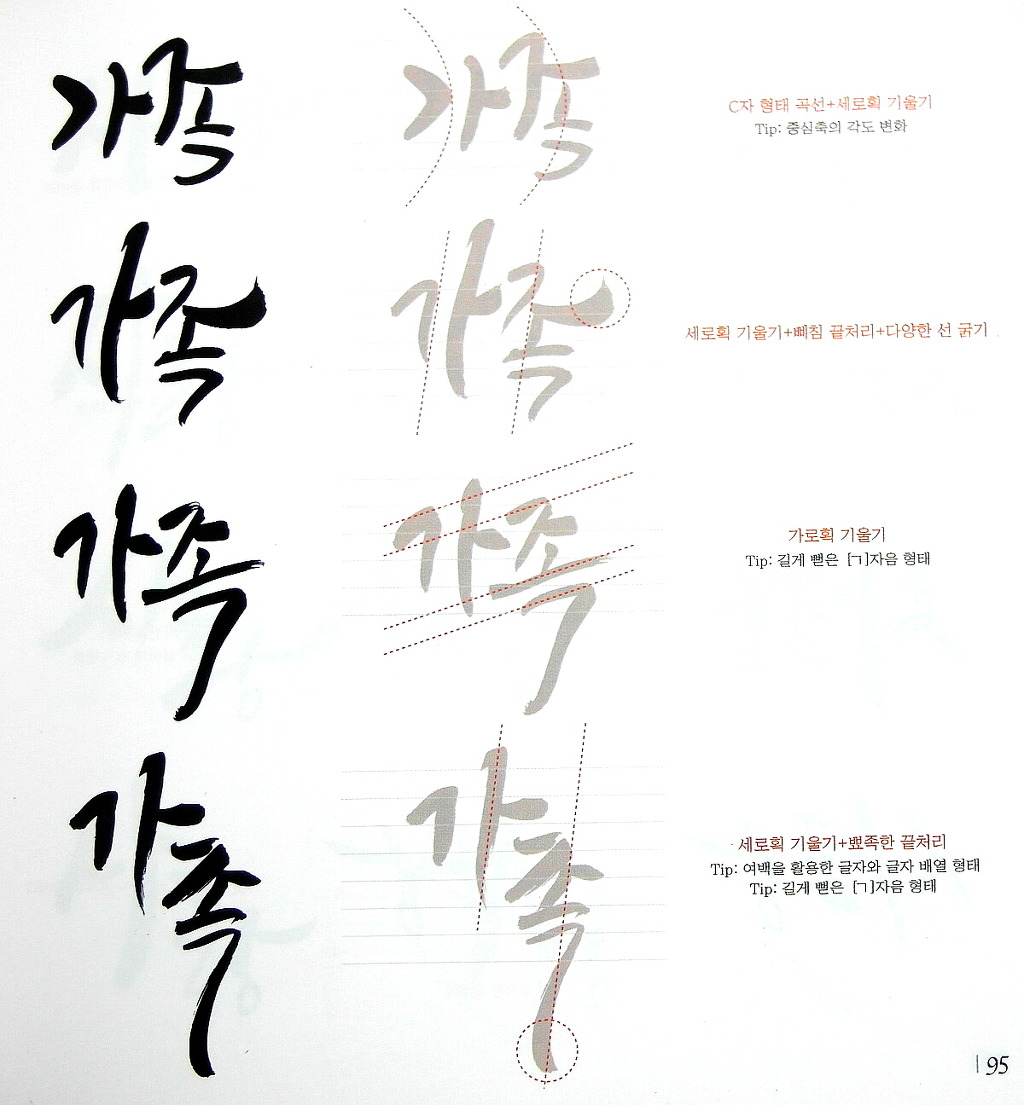 가족
가족
C자 형태 곡선+세로획 기울기
Tip: 중심축의 각도 변화
가족
가족
세로획 기울기+삐침 끝처리+다양한 선 굵기
가족
가족
가로획 기울기
Tip: 길게 뻗은 [ㄱ]자음 형태
가족
가족
세로획 기울기+뾰족한 끝처리
Tip: 여백을 활용한 글자와 글자 배열 형태
Tip: 길게 뻗은 [ㄱ]자음 형태
95